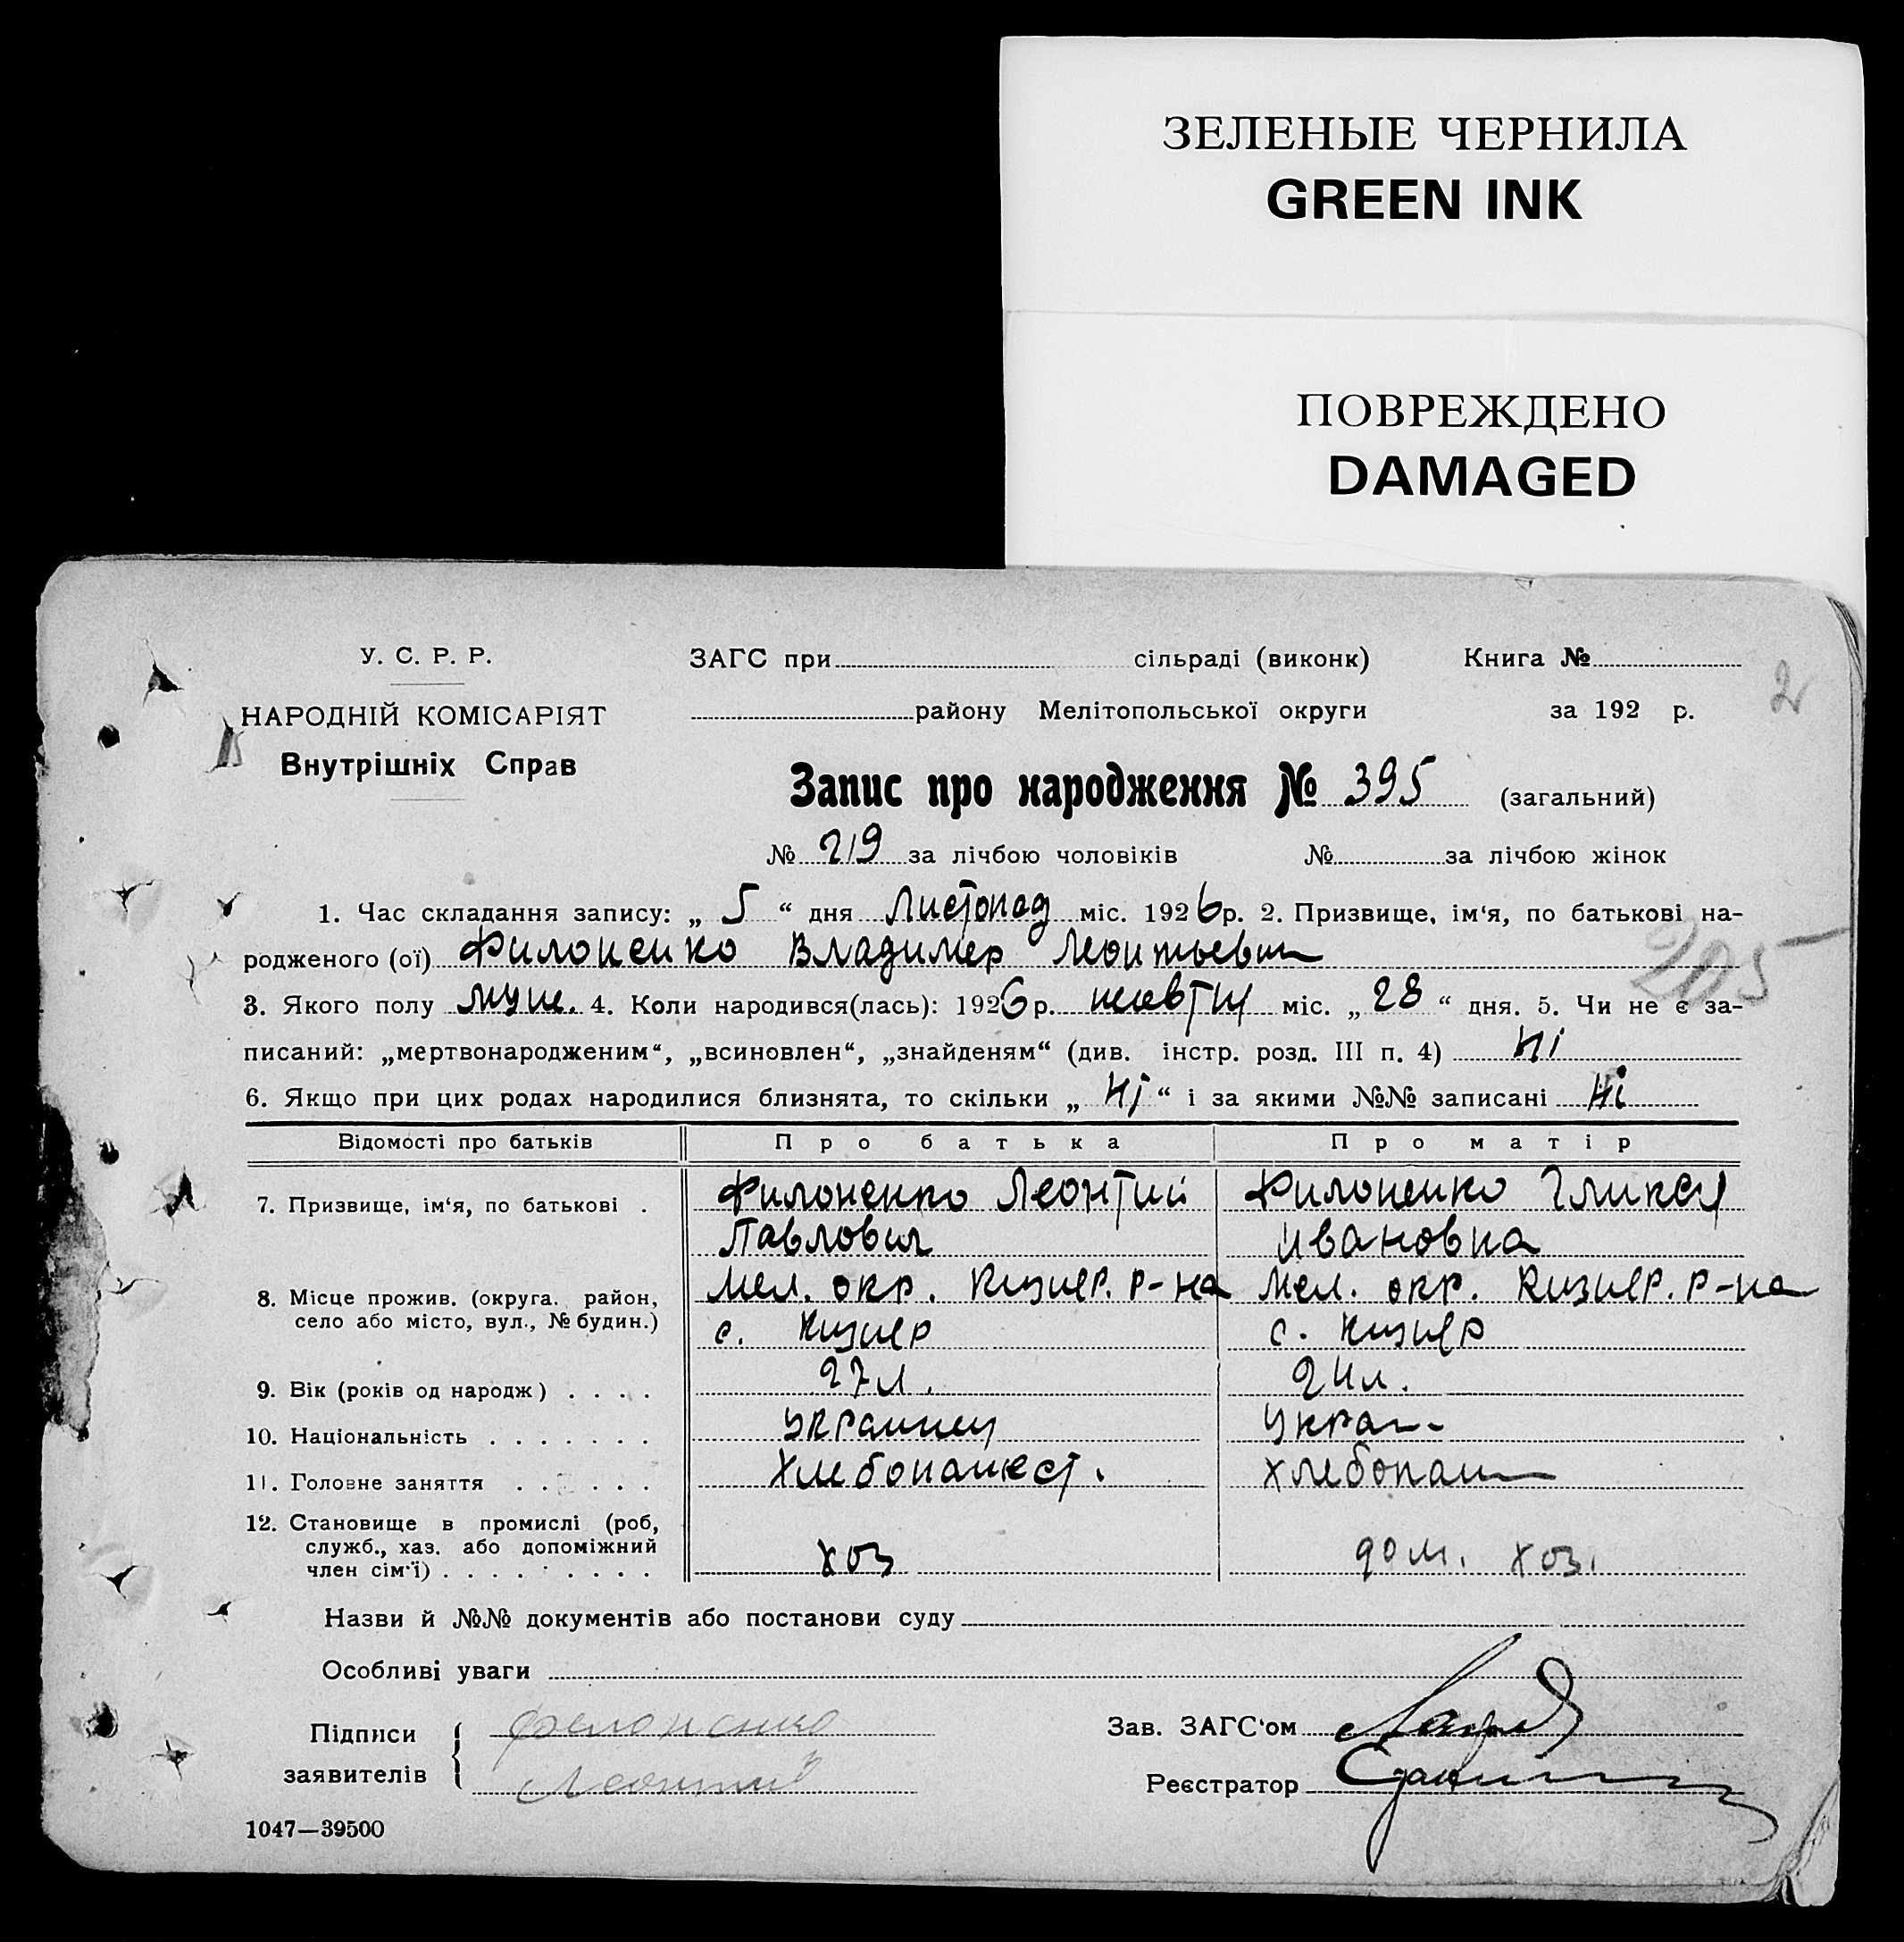 ЗЕЛЕНЫЕ ЧЕРНИЛА
GREEN INK
ПОВРЕЖДЕНО
DAMAGED
У. С. Р. Р.
НАРОДНІЙ КОМІСАРІЯТ
Внутрішніх Справ
ЗАГС при сільраді (виконк) Книга №
району Мелітопольської округи за 192 р.
2
Запис про народження № 395 (загальний)
№ 219 за лічбою чоловіків № за лічбою жінок
1. Час складання запису: „ 5 “ дня Листопад міс. 1926 р. 2. Призвище, ім‘я, по батькові на-
родженого (ої) Филоненко Владимер Леонтьевич
205
3. Якого полу муш. 4. Коли народився(лась): 1926 р. жовтн міс. „ 28 “ дня. 5. Чи не є за-
писаний: „мертвонародженим“, „всиновлен“, „знайденям“ (див. інстр. розд. III п. 4) Ні
6. Якщо при цих родах народилися близнята, то скільки „ Ні “ і за якими №№ записані Ні
Відомості про батьків Про батька Про матір
7. Призвище, ім‘я, по батькові . Филоненко Леонтий Филоненко Гликер
Павлович Ивановна
8. Місце прожив. (округа. район, Мел. окр. Кизиер. р-на Мел. окр. Кизиер. р-на
село або місто, вул., № будин.) с. Кизиер с. Кизиер
9. Вік (років од народж) . . . . 27 л. 24 л.
10. Національність . . . . . . . Украинец Украи
11. Головне заняття . . . . . . Хлебопашест. хлебопаш
12. Становище в промислі (роб,
служб., хаз. або допоміжний
член сім‘ї) . . . . . . . . . хоз дом. хоз.
Назви й №№ документів або постанови суду
Особливі уваги
Підписи Филоненко Зав. ЗАГС‘ом
заявителів Леонтий Реєстратор
1047—39500